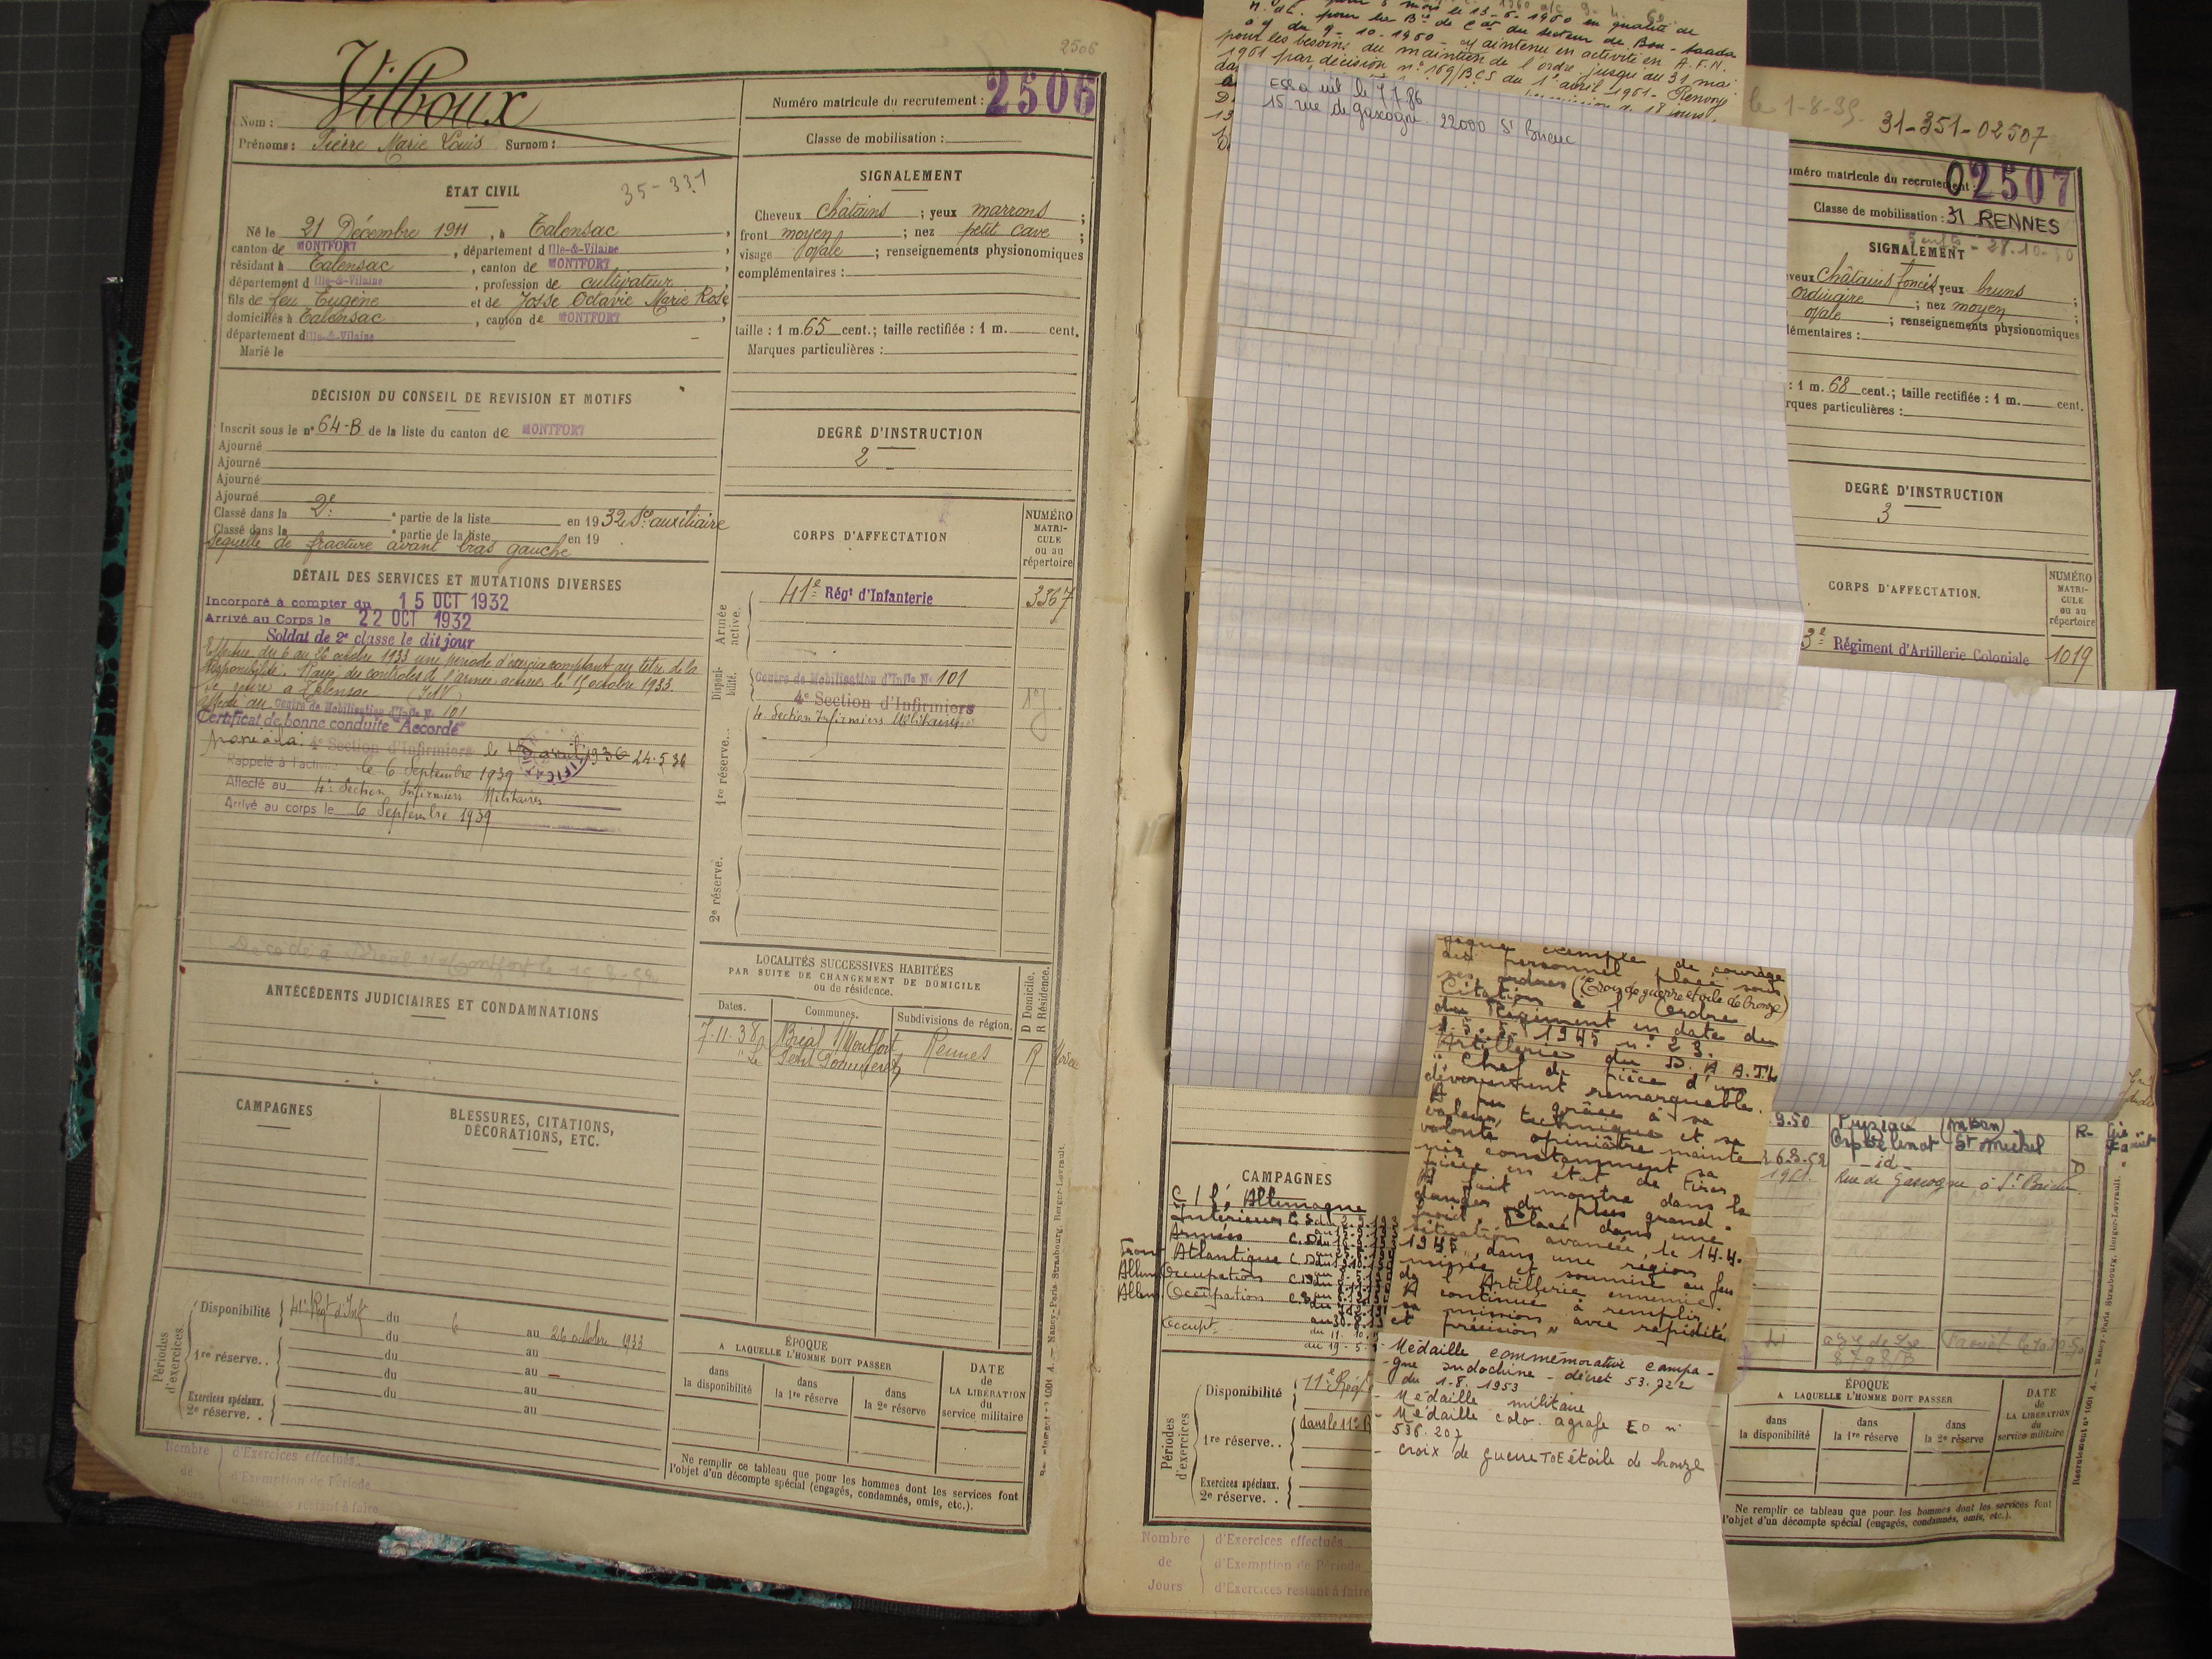 2506
Vilboux
Nom :
Prénoms : Pierre Marie Louis Surnom :
Numéro matricule du recrutement : 2506
Classe de mobilisation :
ÉTAT CIVIL
35-331
Né le 21 Décembre 1911, à Talensac,
canton de MONTFORT, département d Ille-&-Vilaine
résidant à Talensac, canton de MONTFORT,
département d Ille-&-Vilaine, profession de cultivateur
fils de feu Eugène et de Josse Octavie Marie Rose
domiciliés à Talensac, canton de MONTFORT,
département d Ille-&-Vilaine
Marié le
DÉCISION DU CONSEIL DE REVISION ET MOTIFS
Inscrit sous le n° 64-B de la liste du canton de MONTFORT
Ajourné
Ajourné
Ajourné
Ajourné
Classé dans la 2e * partie de la liste en 1932 Sce auxiliaire
Classé dans la * partie de la liste en 19
Séquelle de fracture avant bras gauche
DÉTAIL DES SERVICES ET MUTATIONS DIVERSES
Incorporé à compter du 15 OCT 1932
Arrivé au Corps le 22 OCT 1932
Soldat de 2e classe le dit jour
Effectue du 6 au 26 octobre 1933 une période d'exercice comptant au titre de la
disponibilité. Rayé des contrôles de l'armée active le 15 octobre 1933.
Se retire à Talensac (I&V)
Affecté au Centre de Mobilisation d'Infie N° 101
Certificat de bonne conduite "Accordé"
Passé à la 4e Section d'Infirmiers le 15 avril 1936 24.5.36
Rappelé à l'activité le 6 Septembre 1939
Affecté au 4e Section Infirmiers Militaires
Arrivé au corps le 6 Septembre 1939
Décédé à Bréal s/s Montfort le
ANTÉCÉDENTS JUDICIAIRES ET CONDAMNATIONS
CAMPAGNES
BLESSURES, CITATIONS,
DÉCORATIONS, ETC.
Périodes d'exercices.
Disponibilité 41e Rgt d'Inf du 6 au 26 octobre 1933
du au
1re réserve.. du au
du au
Exercices spéciaux.
2e réserve. . au
Nombre de Jours
d'Exercices effectués
d'Exemption de Période
d'Exercices restant à faire
SIGNALEMENT
Cheveux châtains ; yeux marrons ;
front moyen ; nez petit cave ;
visage ovale ; renseignements physionomiques
complémentaires :
taille : 1 m. 65 cent.; taille rectifiée : 1 m. cent.
Marques particulières :
DEGRÉ D'INSTRUCTION
2
CORPS D'AFFECTATION
NUMÉRO
MATRI-
CULE
ou au
répertoire
Armée active.
41e Régt d'Infanterie 3367
Disponi-bilité.
Centre de Mobilisation d'Infie N° 101
4e Section d'Infirmiers
4e Section Infirmiers Militaires
1re réserve...
2e réserve.
LOCALITÉS SUCCESSIVES HABITÉES
PAR SUITE DE CHANGEMENT DE DOMICILE
ou de résidence.
D Domicile.
R Résidence.
Dates. Communes. Subdivisions de région.
7.11.38 Bréal s/Montfort Rennes R
ÉPOQUE
A LAQUELLE L'HOMME DOIT PASSER
dans la disponibilité
dans la 1re réserve
dans la 2e réserve
DATE
de
LA LIBÉRATION
du
service militaire
Ne remplir ce tableau que pour les hommes dont les services font
l'objet d'un décompte spécial (engagés, condamnés, omis, etc.).
Nancy-Paris-Strasbourg, Berger-Levrault.
mois le 13-6-1960 en qualité de
pour les Bns de Cdt du secteur de Bou-Saada
du 9-10-1960 - Maintenu en activité en A.F.N.
pour les besoins du maintien de l'ordre jusqu'au 31 mai
1961 par décision n° 169/BCS du 1er avril 1961 - Renvoyé
15 rue de gascogne 22000 St Brieuc
le 1-8-35. 31-351-02507
uméro matricule du recrutement : 02507
Classe de mobilisation : 31 RENNES
28.10.50
SIGNALEMENT
veux Châtains foncés yeux bruns ;
ordinaire ; nez moyen ;
ovale ; renseignements physionomiques
lémentaires :
: 1 m. 68 cent.; taille rectifiée : 1 m. cent.
rques particulières :
DEGRÉ D'INSTRUCTION
3
CORPS D'AFFECTATION.
NUMÉRO
MATRI-
CULE
ou au
répertoire
3e Régiment d'Artillerie Coloniale 1019
exemple de courage
au personnel placé sous
ses ordres (Croix de guerre étoile de bronze)
Citation à l'Ordre
du Régiment en date du
1945 n° 23.
Artillerie du D.A.ATL
" Chef de pièce d'un
dévouement remarquable.
A pu grâce à sa
valeur technique et sa
volonté opiniâtre mainte
nir constamment sa
pièce en état de tirer.
A fait montre dans le
danger du plus grand
froid. Placé dans une
situation avancée, le 14.4.
1945, dans une région
minée et soumise au feu
de l'Artillerie ennemie.
A continué à remplir
sa mission avec rapidité
et précision "
- Médaille commémorative campa-
gne Indochine - décret 53.722
du 1-8-1953
- Médaille militaire
- Médaille colo. agrafe EO n°
536.207
- Croix de guerre TOE étoile de bronze
CAMPAGNES
C/ l'Allemagne
Intérieur
Armées
Front Atlantique
Allem Occupation
Allem Occupation
Occupt.
9.50
St Michel R-
-id- D
1961. Rue de Gascogne à St Brieuc
Périodes d'exercices
Disponibilité 11e Régt
dans le 11e
1re réserve..
Exercices spéciaux.
2e réserve. .
Nombre de Jours
d'Exercices effectués
d'Exemption de Période
d'Exercices restant à faire
ÉPOQUE
A LAQUELLE L'HOMME DOIT PASSER
dans la disponibilité
dans la 1re réserve
dans la 2e réserve
DATE
de
LA LIBÉRATION
du
service militaire
Ne remplir ce tableau que pour les hommes dont les services font
l'objet d'un décompte spécial (engagés, condamnés, omis, etc.).
Recrutement n° 1001 A. — Nancy-Paris-Strasbourg, Berger-Levrault.